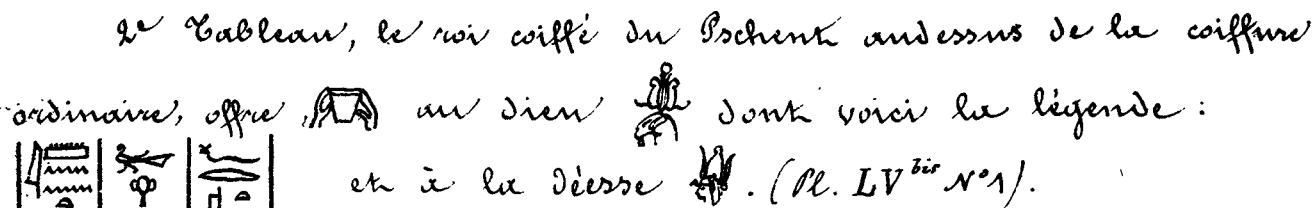 2e Tableau, le roi coiffé du Pschent audessus de la coiffure
ordinaire, offre au dieu dont voici la légende :
et à la déesse . (Pl. LV bis N° 1).